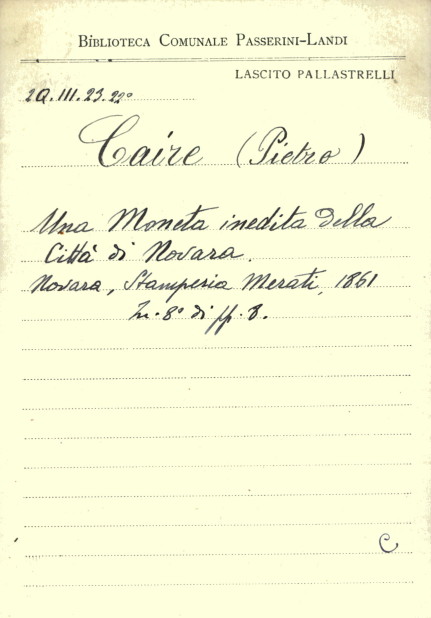 BIBLIOTECA COMUNALE PASSERINI-LANDI
LASCITO PALLASTRELLI
2Q.III.23.22º
Caire (Pietro)
Una Moneta inedita della
Città di Novara.
Novara, Stamperia Merati, 1861
In-8º di pp. 8.
C